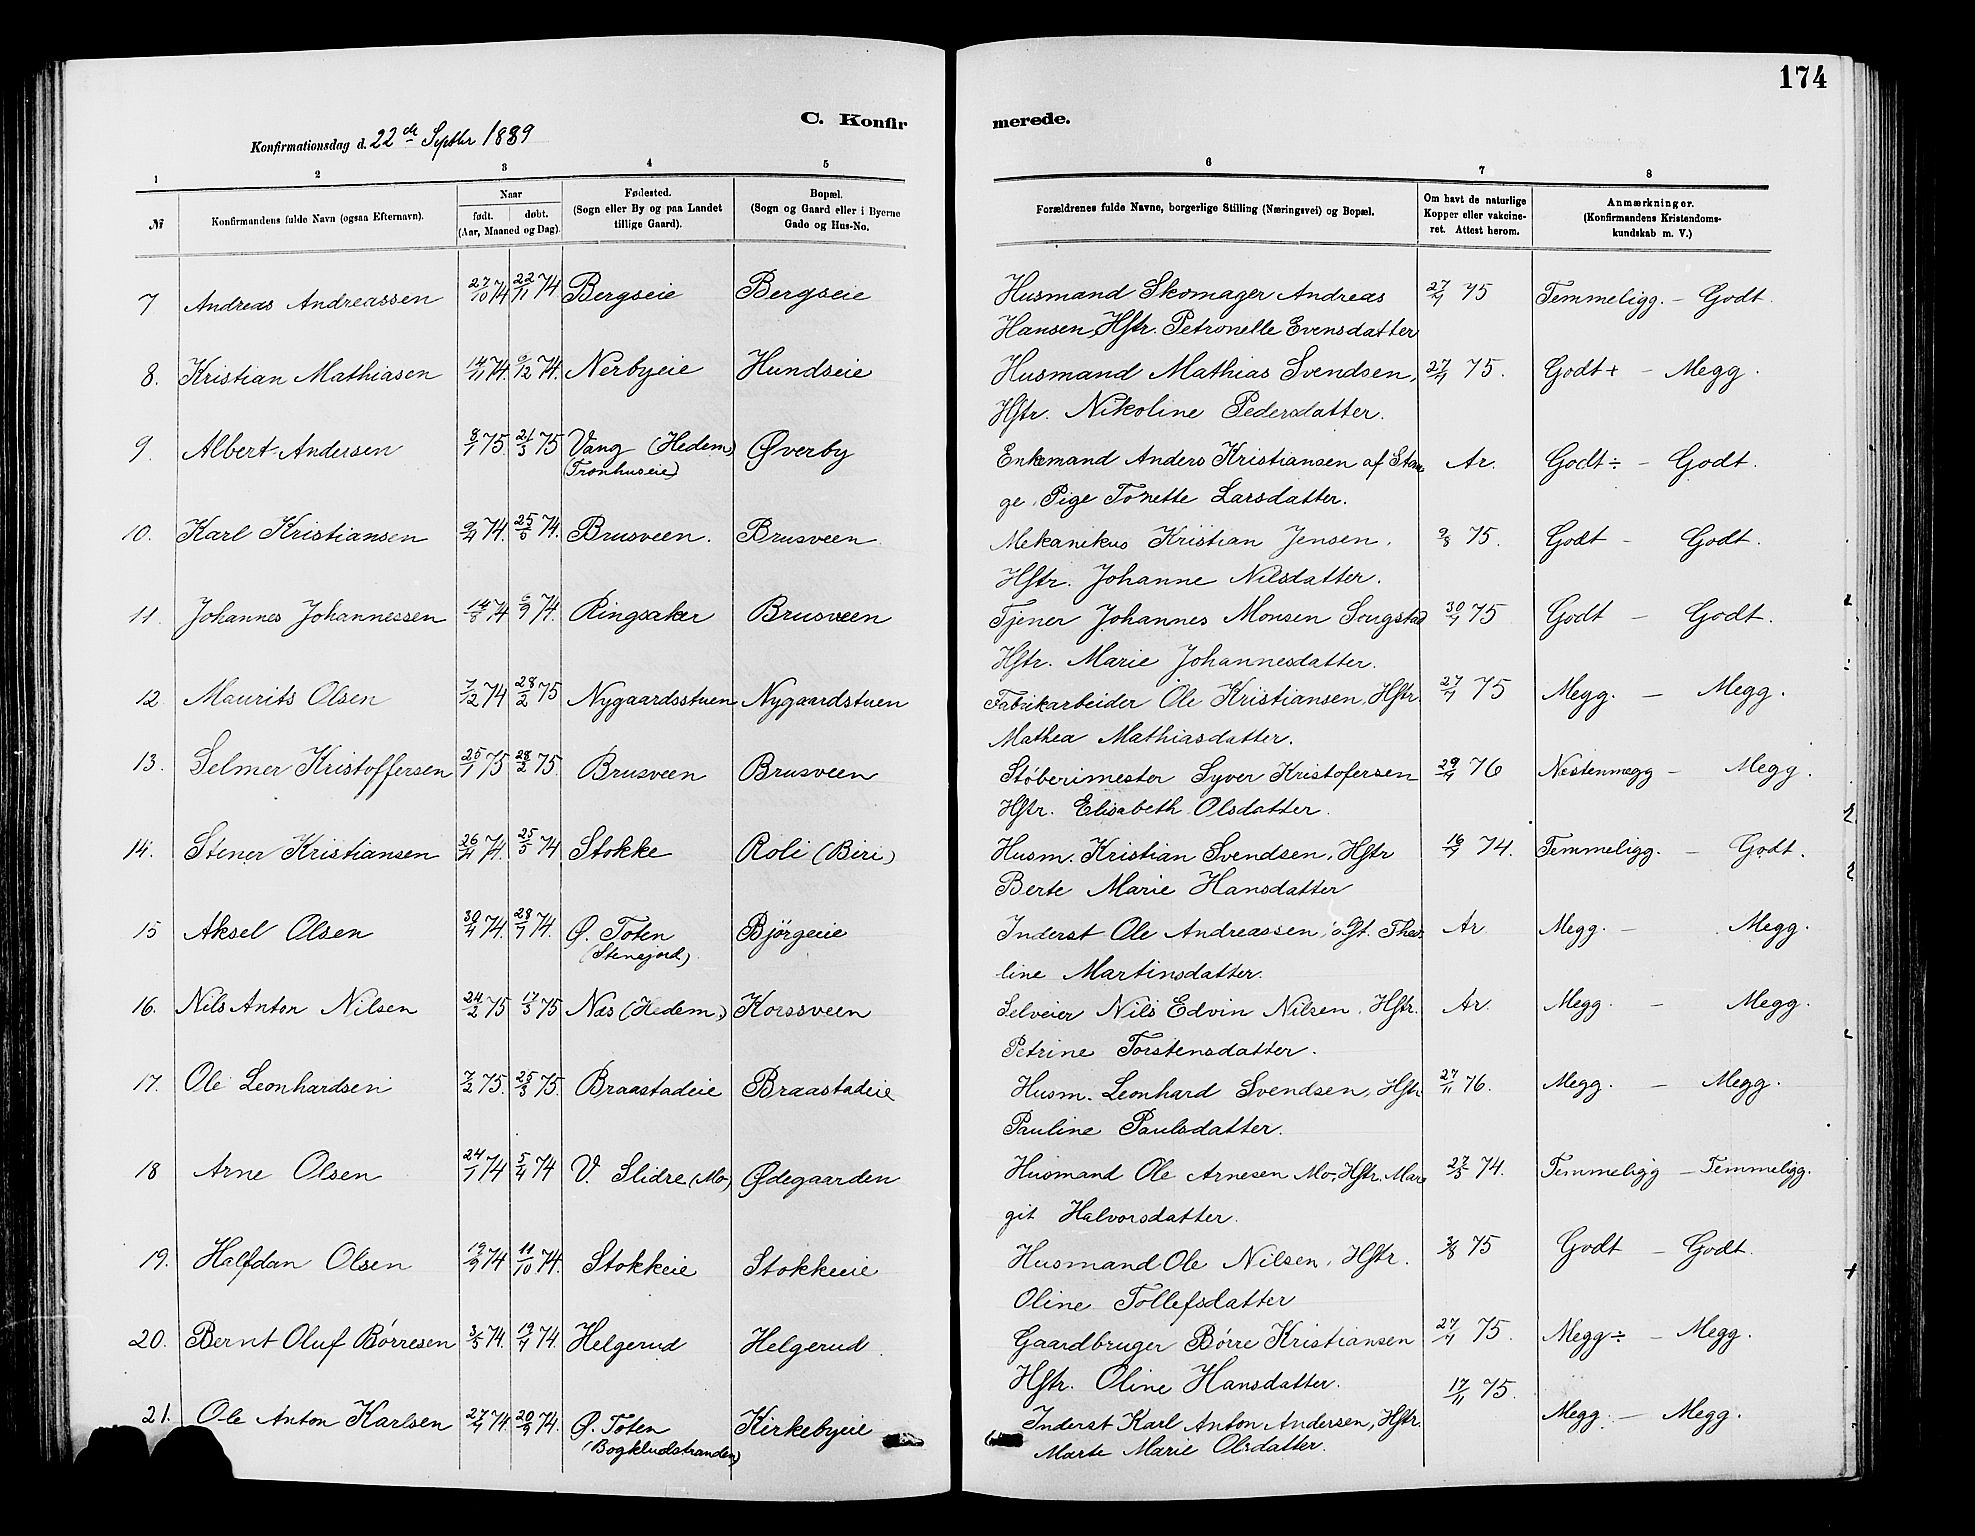 174
C. Konfir merede.
Konfirmationsdag d. 22de Septbr 1889
1 2 3 4 5 6 7 8
№ Konfirmandens fulde Navn (ogsaa Efternavn). Naar født. døbt. (Aar, Maaned og Dag). Fødested. (Sogn eller By og paa Landet tillige Gaard). Bopæl. (Sogn og Gaard eller i Byerne Gade og Hus-No. Forældrenes fulde Navne, borgerlige Stilling (Næringsvei) og Bopæl. Om havt de naturlige Kopper eller vakcineret. Attest herom. Anmærkninger. (Konfirmandens Kristendomskundskab m. V.)
7 Andreas Andreassen 27/10 74 22/11 74 Bergseie Bergseie Husmand Skomager Andreas 75 Temmeligg. – Godt.
Hansen, Hstr. Petronelle Evensdatter
8. Kristian Mathiasen 14/11 74. 6/12 74. Nerbyeie Hundseie Husmand Mathias Svendsen, 75. Godt + – Megg.
Hstr. Nikoline Pedersdatter.
9. Albert Andersen 8/1 75. 21/3 75 Vang (Hedem) Øverby Enkemand Anders Kristiansen af Stan Ar. Godt ÷ – Godt.
(Tronhuseie) ge, Pige Tonette Larsdatter.
10. Karl Kristiansen 9/4 74. 25/5 74. Brusveen. Brusveen Mekanikus Kristian Jensen, 9/8 75. Godt – Godt.
Hstr. Johanne Nilsdatter.
11. Johannes Johannessen 14/8 74 6/9 74. Ringsaker Brusveen Tjener Johannes Monsen 75 Godt – Godt.
Hstr. Marie Johannesdatter.
12. Maurits Olsen 7/12 74 28/2 75 Nygaardsstuen Nygaardstuen Fabrikarbeider Ole Kristiansen, Hstr. 75 Megg. – Megg.
Mathea Mathiasdatter.
13. Selmer Kristoffersen 25/1 75 28/2 75. Brusveen Brusveen Støberimester Syver Kristofersen 76 Nestenmegg – Megg.
Hstr. Elisabeth Olsdatter.
14. Stener Kristiansen 26/4 74. 25/5 74 Stokke Roli (Biri) Husm. Kristian Svendsen, Hstr 74. Temmeligg. – Godt.
Berte Marie Hansdatter
15 Aksel Olsen 30/4 74. 28/7 74. Ø. Toten Bjørgeie Inderst Ole Andreassen, Ar Megg. – Megg.
(Stenejord). line Martinsdatter.
16. Nils Anton Nilsen 24/2 75 17/3 75 Næs (Hedem.) Korssveen Selveier Nils Edvin Nilsen, Hstr. Ar. Megg. – Megg.
Petrine Torstensdatter.
17. Ole Leonhardsen 7/2 75. 25/3 75. Braastadeie Braastadeie Husm. Leonhard Svendsen, Hstr 27/11 76. Megg. – Megg.
Pauline Paulsdatter.
18 Arne Olsen 24/1 74 5/4 74 V. Slidre (Mo) Ødegaarden Husmand Ole Arnesen Mo, Hstr. Mar 27/5 74. Temmeligg – Temmeligg.
git Halvorsdatter.
19. Halfdan Olsen 19/9 74 11/10 74. Stokkeie Stokkeie Husmand Ole Nilsen, Hstr. 3/8 75 Godt – Godt.
Oline Tollefsdatter
20. Bernt Oluf Børresen 3/3 74. 19/4 74. Helgerud Helgerud Gaardbruger Børre Kristiansen 75. Megg ÷ – Megg.
Hstr. Oline Hansdatter.
21. Ole Anton Karlsen 74. 20/9 74. Ø. Toten Kirkebyeie Inderst Karl Anton Andersen, Hstr. 17/11 75. Megg. – Megg.
(Bogkludstranden) Marte Marie Olsdatter.